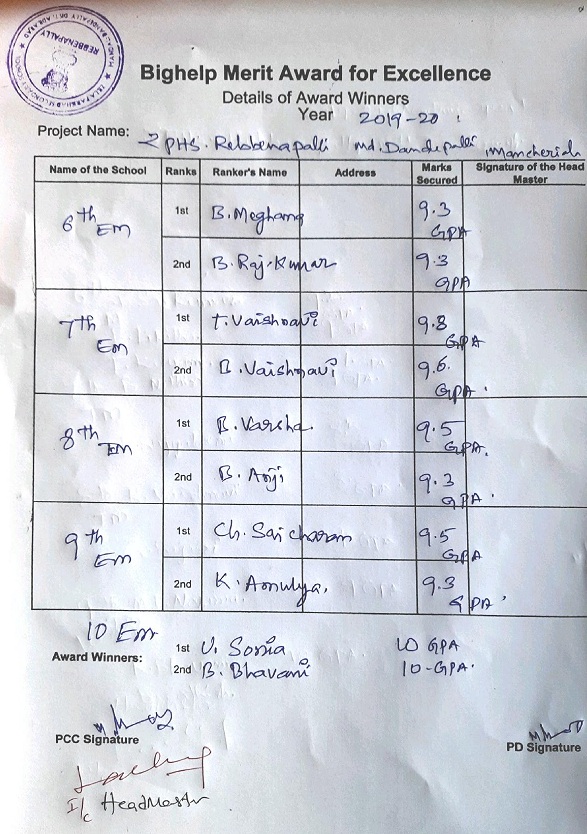 REBBENAPALLY
Bighelp Merit Award for Excellence
Details of Award Winners
Year 2019-20
Project Name: ZPHS. Rebbenapalli Md. Dandepalli Mancherial
Name of the School Ranks Ranker's Name Address Marks Secured Signature of the Head Master
6th EM 1st B. Meghana 9.3 GPA
2nd B. Raj. Kumar 9.3 GPA
7th EM 1st T. Vaishnavi 9.8 GPA
2nd B. Vaishnavi 9.6. GPA.
8th EM 1st B. Varsha. 9.5 GPA.
2nd B. Anji 9.3 GPA.
9th EM 1st Ch. Sai charam 9.5 GPA
2nd K. Amulya, 9.3 GPA.
10 EM
Award Winners: 1st U. Sonia 10 GPA
2nd B. Bhavani 10-GPA.
PCC Signature
PD Signature
I/c HeadMaster